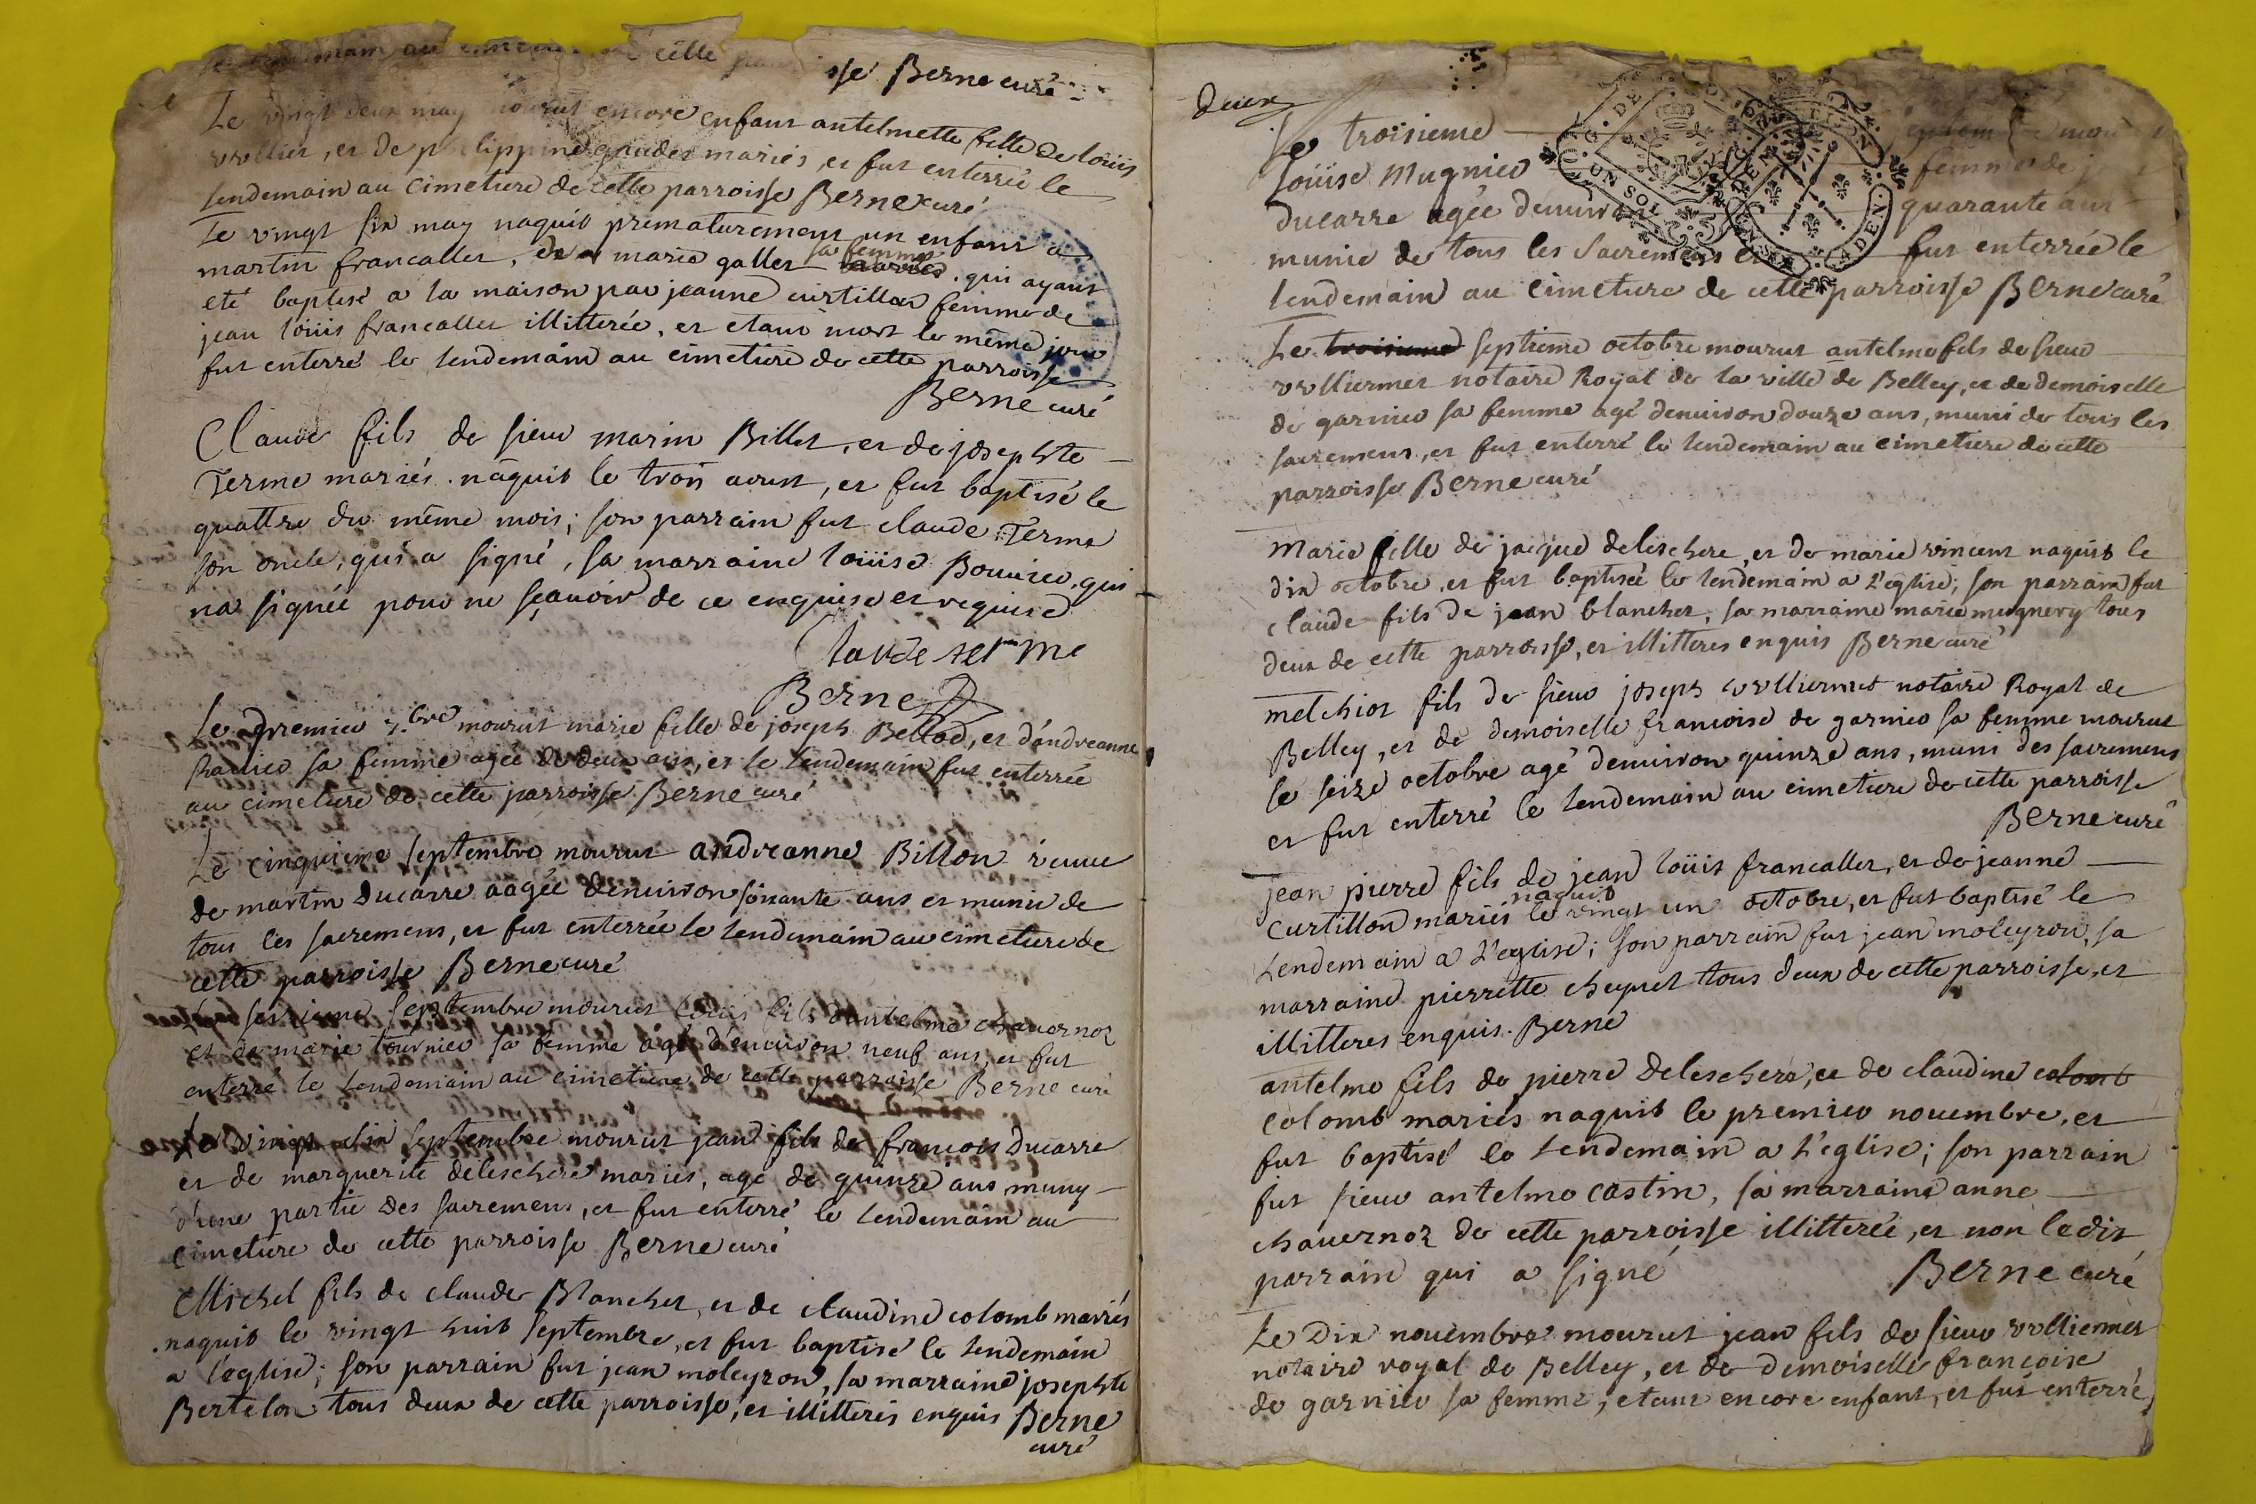 lendemain au cimetiere de cette parroisse Berne curé
Le vingt deux may mourut encore enfant antelmette fille de loüis
vvllier, et de philippine gaudet mariés, et fut enterrée le
lendemain au cimetiere de cette parroisse Berne curé
Le vingt six may naquit prematurement un enfant a
martin francallet, de marie gallet sa femme qui ayant
eté baptisé a la maison par jeanne curtillon femme de
jean loüis francallet illitterée, et etant mort le même jour
fut enterré le lendemain au cimetiere de cette parroisse
Berne curé
Claude fils de sieur marin Billet, et de josephte
Terme mariés. naquit le trois aoust, et fut baptisé le
quattre du même mois; son parrain fut claude Terme
son oncle, qui a signé, sa marraine loüise Bouvier, qui
na signée pour ne sçauoir de ce enquise et requise
Claude terme
Berne
Le premier 7.bre mourut marie fille de joseph Bellod, et dándreanne
Ravier sa femme agée de deux ans, et le lendemain fut enterrée
au cimetiere de cette parroisse Berne curé
Le cinquieme septembre mourut andreanne Billon veuue
de martin Ducarre aagée denuiron soixante ans et munie de
tous les sacremens, et fut enterrée le lendemain au cimetiere de
cette parroisse Berne curé
septembre mourut loüis fils dantelme chauernoz
et de marie tournier sa femme agé d'enuiron neuf ans, et fut
enterré le lendemain au cimetiere de cette parroisse Berne curé
Le vingt six septembre mourut jean fils de françois Ducarre
et de marguerite deleschere mariés, agé de quinze ans muny
d'une partie des sacremens, et fut enterré le lendemain au
cimetiere de cette parroisse Berne curé
Michel fils de claude Blanchet, et de claudine colomb mariés
naquit le vingt huit septembre, et fut baptisé le lendemain
a leglise; son parrain fut jean moleyron, sa marraine josephte
Bertelon tous deux de cette parroisse, et illitterés enquis Berne
curé
Deux
Le troisieme septem mou
Loüise Mugnier femme de j
ducarre agée denuiron quarante ans
munie de tous les sacremens et fut enterrée le
lendemain au cimetiere de cette parroisse Berne curé
G. DE
UN SOL
Le troisieme septieme octobre mourut antelme fils de sieur
vvlliermet notaire Royal de la ville de Belley, et de demoiselle
de garnier sa femme agé denuiron douze ans, muni de tous les
sacremens, et fut enterré le lendemain au cimetiere de cette
parroisse Berne curé
Marie fille de jacque deleschere, et de marie vincent naquit le
dix octobre, et fut baptisée le lendemain a l'eglise; son parrain fut
claude fils de jean blanchet, sa marraine marie mugnery tous
deux de cette parroisse, et illitteres enquis Berne curé
Melchior fils de sieur joseph vvlliermet notaire Royal de
Belley, et de demoiselle francoise de garnier sa femme mourut
le seize octobre agé denuiron quinze ans, muni des sacremens
et fut enterré le lendemain au cimetiere de cette parroisse
Berne curé
jean pierre fils de jean loüis francallet, et de jeanne
Curtillon mariés naquit le vingt un octobre, et fut baptisé le
lendemain a l'eglise; son parrain fut jean moleyron, sa
marraine pierrette cheynet tous deux de cette parroisse, et
illitteres enquis. Berne
antelme fils de pierre Deleschere, et de claudine colomb
Colomb mariés naquit le premier nouembre, et
fut baptisé le lendemain a l'eglise; son parrain
fut sieur antelme castin, sa marraine anne
chauernoz de cette parroisse illitterée, et non ledit
parrain qui a signé Berne curé
Le Dix nouembre mourut jean fils de sieur vvlliermet
notaire royal de Belley, et de Demoiselle françoise
de garnier sa femme, etant encore enfant, et fut enterré